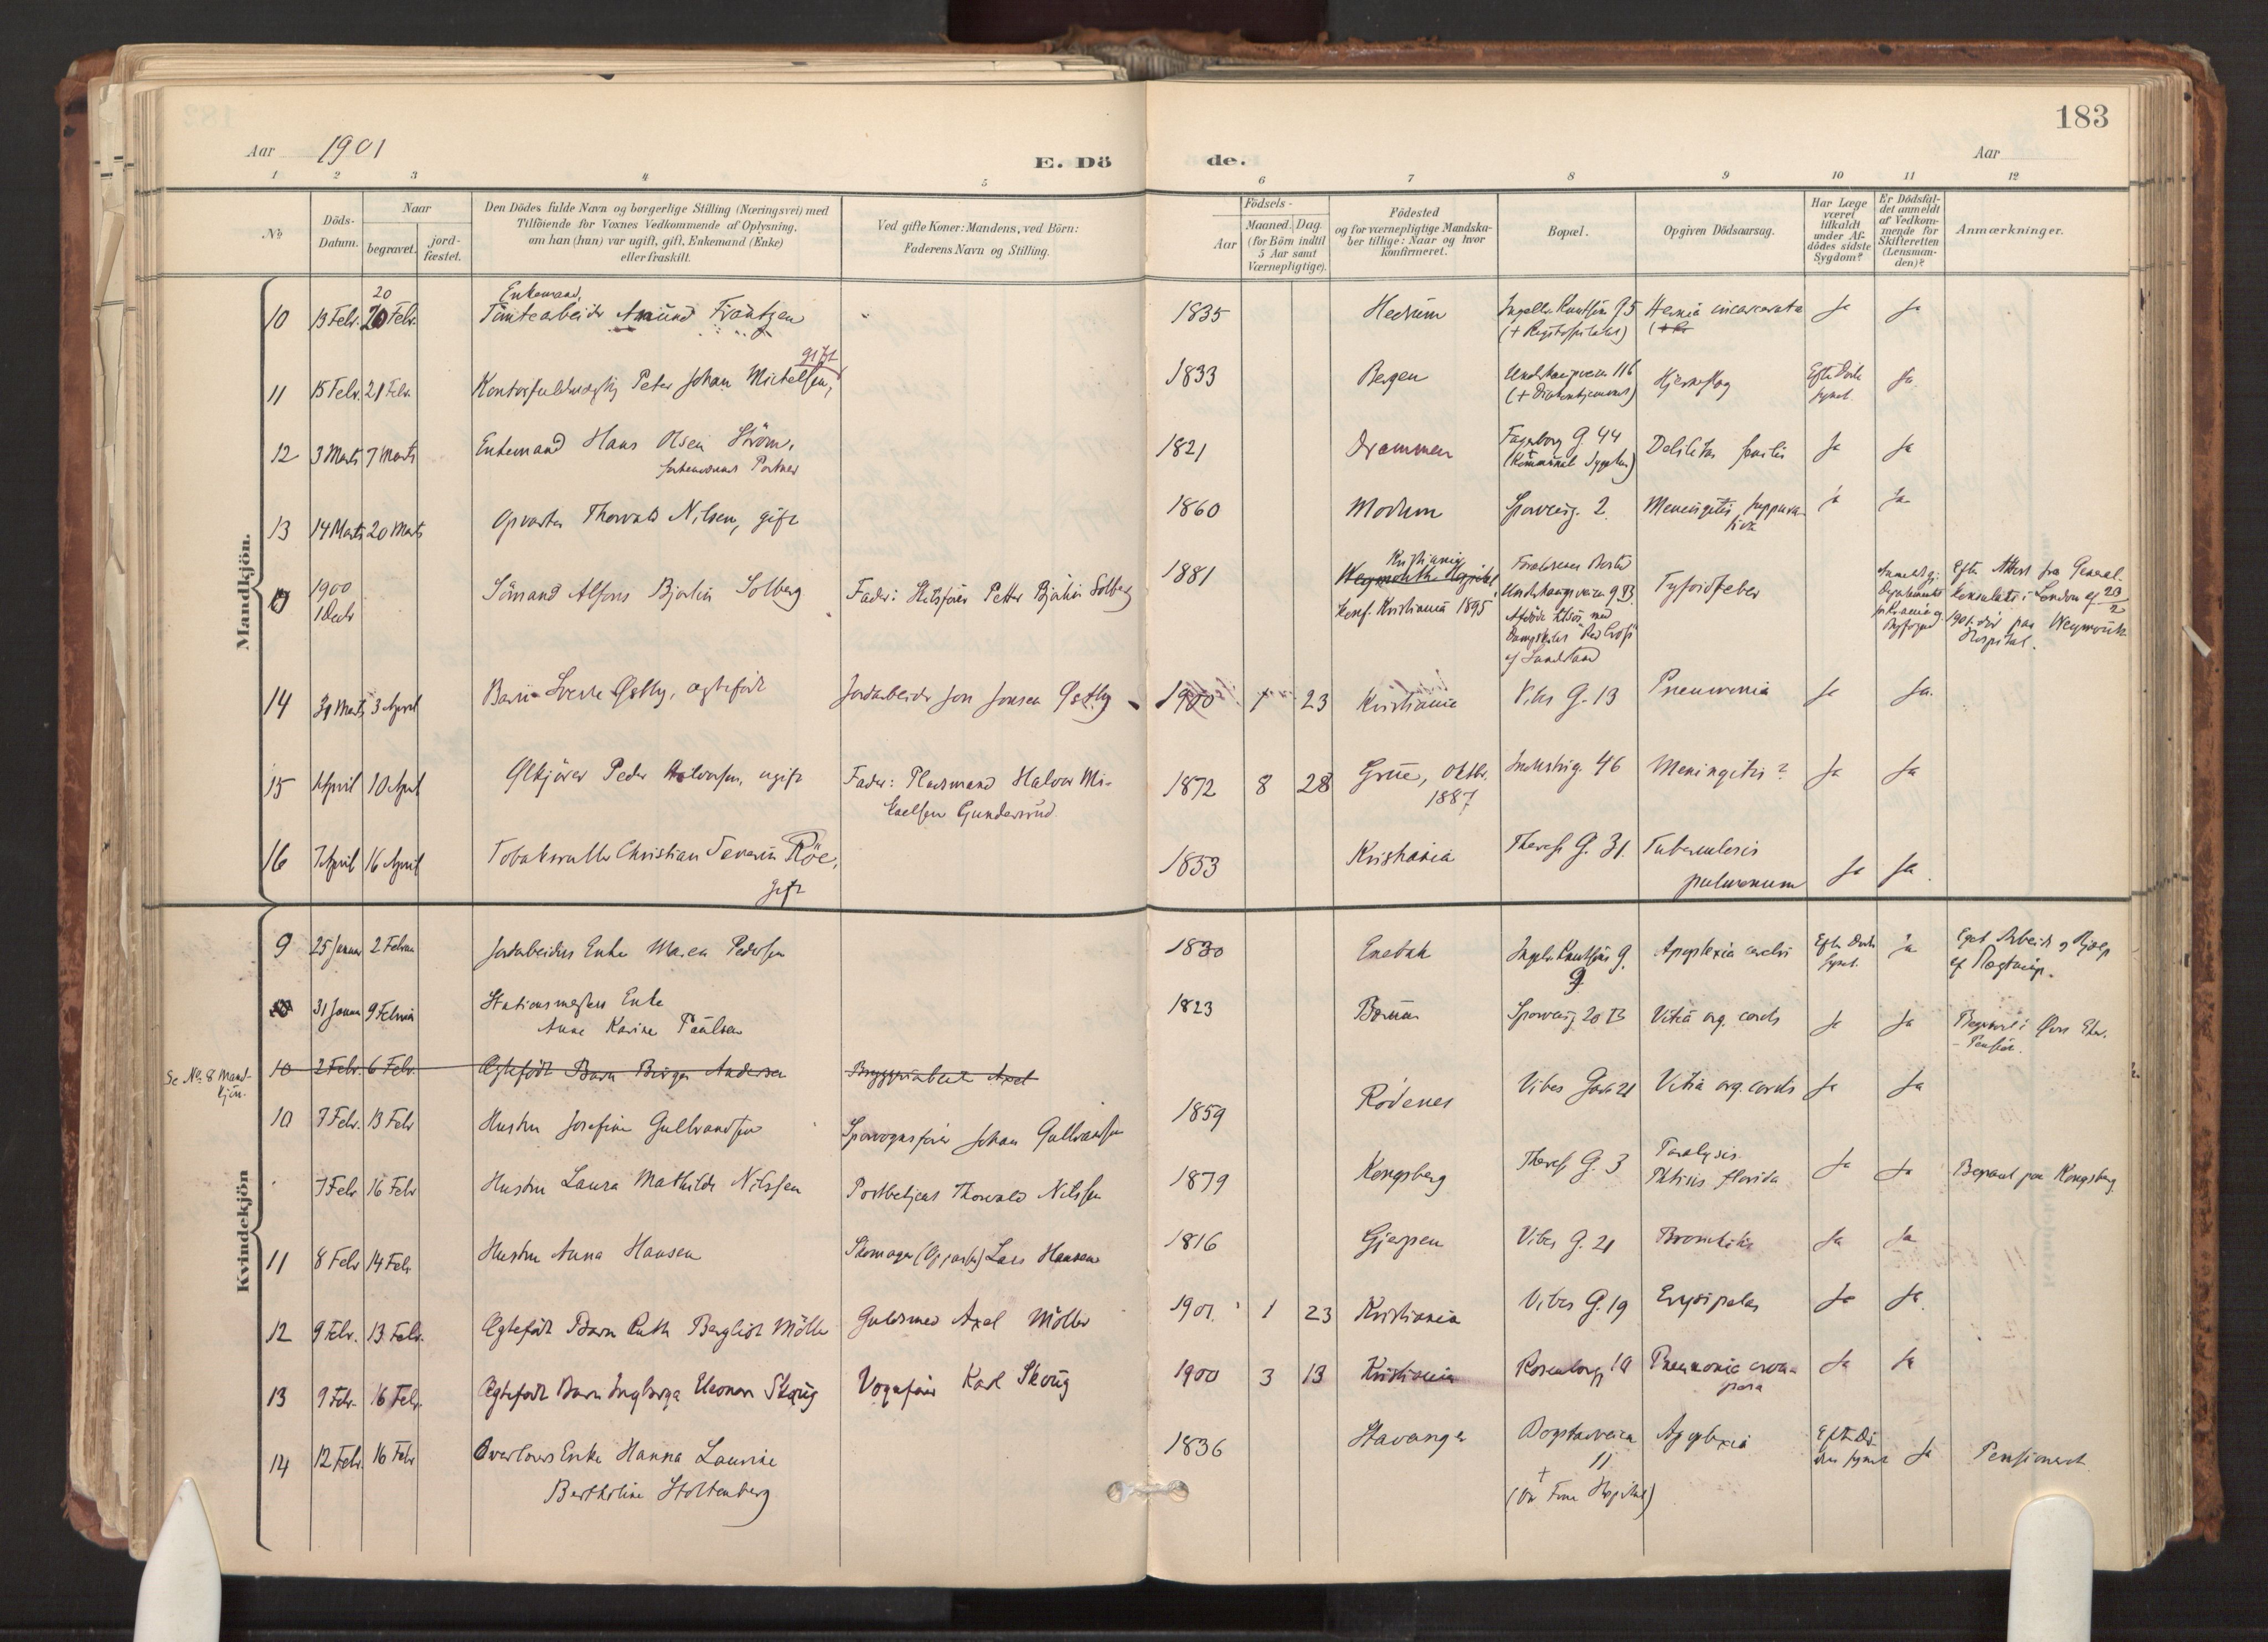 183
Aar 1901
E. Dö
de.
Aar
1 2 3 4 5 6 7 8 9 10 11 12
No
Döds-
Datum.
Naar
begravet.
jord-
fæstet.
Den Dödes fulde Navn og borgerlige Stilling (Næringsvei) med
Tilföiende for Voxnes Vedkommende af Oplysning,
om han (hun) var ugift, gift, Enkemand (Enke)
eller fraskilt.
Ved gifte Koner: Mandens, ved Börn:
Faderens Navn og Stilling.
Födsels-
Aar
Maaned. Dag
(for Börn indtil
5 Aar samt
Værnepligtige).
Födested
og for værnepligtige Mandska-
ber tillige: Naar og hvor
konfirmeret.
Bopæl.
Opgiven Dödsaarsag.
Har Læge
været
tilkaldt
under Af-
dödes sidste
Sygdom?
Er Dödsfal-
det anmeldt
af Vedkom-
mende for
Skifteretten
(Lensman-
den)?
Anmærkninger.
Mandkjön.
20
Enkemand,
10 13 Febr. 20 Febr. Tomtearbeider Amund Frantzen 1835 Hedrum Hernia incarcerata Ja Ja
(+ Rigshospitalet)
gift
11 15 Febr. 21 Febr. Kontorfuldmægtig Peter Johan Michelsen, 1833 Bergen 116 Hjerneslag Efter Döde Ja
(+ Diakonhjemmet) synet.
12 3 Marts 7 Marts Enkemand Hans Olsen Ström, 1821 Drammen Fagerborg G. 44 Debilitas senilis Ja Ja
forhenværende Portner (Kommunal Sygehus)
13 14 Marts 20 Marts Opvarter Thorvald Nilsen, gift 1860 Modum Sporveisg. 2. Meningitis suppura-
tiva ja Ja
1900
1 Decbr Sömand Alfons Bjarlin Solberg Fader: Petter Bjarlin Solberg 1881 Kristiania
Weymouth Hospital,
Konf. Kristiania 1895 Tyfoidfeber
Efter Attest fra General-
konsulatet i London af 23/2
1901 död paa Weymouth
Hospital.
14 31 Marts 3 April Barn Sverre Østby, ægtefödt Jordarbeider Jon Jonsen Østby 1900 1 23 Kristiania Vibes G. 13 Pneumonia Ja Ja.
15 April 10 April Ølkjörer Peder Halvorsen, ugift Fader: Pladsmand Halvor Mi-
kaelsen Gundersrud 1872 8 28 Grue, Oktbr.
1887 Industrig. 46 Meningitis? Ja Ja
16 7 April 16 April Christian Severin Röe,
gift 1853 Kristiania Theres. G. 31. Tuberculosis
pulmonum Ja Ja.
Kvindekjön
9 25 Januar 2 Februar Jordarbeiders Enke Maren Pedersen 1830 Enebak 9 Apoplexia cerebri Efter Döde
synet. ja Eget Arbeide og Hjælp
af Slægtninge.
31 Januar 9 Februar Stationsmesters Enke
Anne Karine Paulsen 1823 Bærum Sporveisg. 20 B Vitia org. cordis Ja Ja
Pension.
Se No. 8 Mand-
kjön. 10 2 Febr. 6 Febr. Ægtefödt Barn Birger Andersen Bryggeriarbeider Axel
10 7 Febr. 13 Febr Hustru Josefine Gulbrandsen Sporvognsförer Johan Gulbrandsen 1859 Rödenes Vibes Gade 21 Vitia org. cordis Ja Ja
7 Febr. 16 Febr Hustru Laura Mathilde Nilssen Postbetjent Thorvald Nilssen 1879 Kongsberg Theres. G. 3 Paralysis.
Phtisis florida Ja Ja Begravet paa Kongsberg
11 8 Febr 14 Febr Hustru Anna Hansen Skomager Lars Hansen 1816 Gjerpen Vibes G. 21 Bronchitis Ja Ja
12 9 Febr. 13 Febr. Ægtefödt Barn Ruth Bergliot Möller Guldsmed Axel Möller 1901. 1 23 Kristiania Vibes G. 19 Erysipelas Ja Ja.
13 9 Febr. 16 Febr. Ægtefödt Barn Ingborga Eleonora Skoug Vognförer Karl Skoug 1900 3 13 Kristiania Rosenborgg. 10 Pneumonia crou-
posa Ja Ja
14 12 Febr. 16 Febr Overlærers Enke Hanna Laurine
Bertholine Stoltenberg 1836 Stavanger Bogstadveien
11
+
(Vor Frue Hospital) Apoplexia Ja Pensioneret.